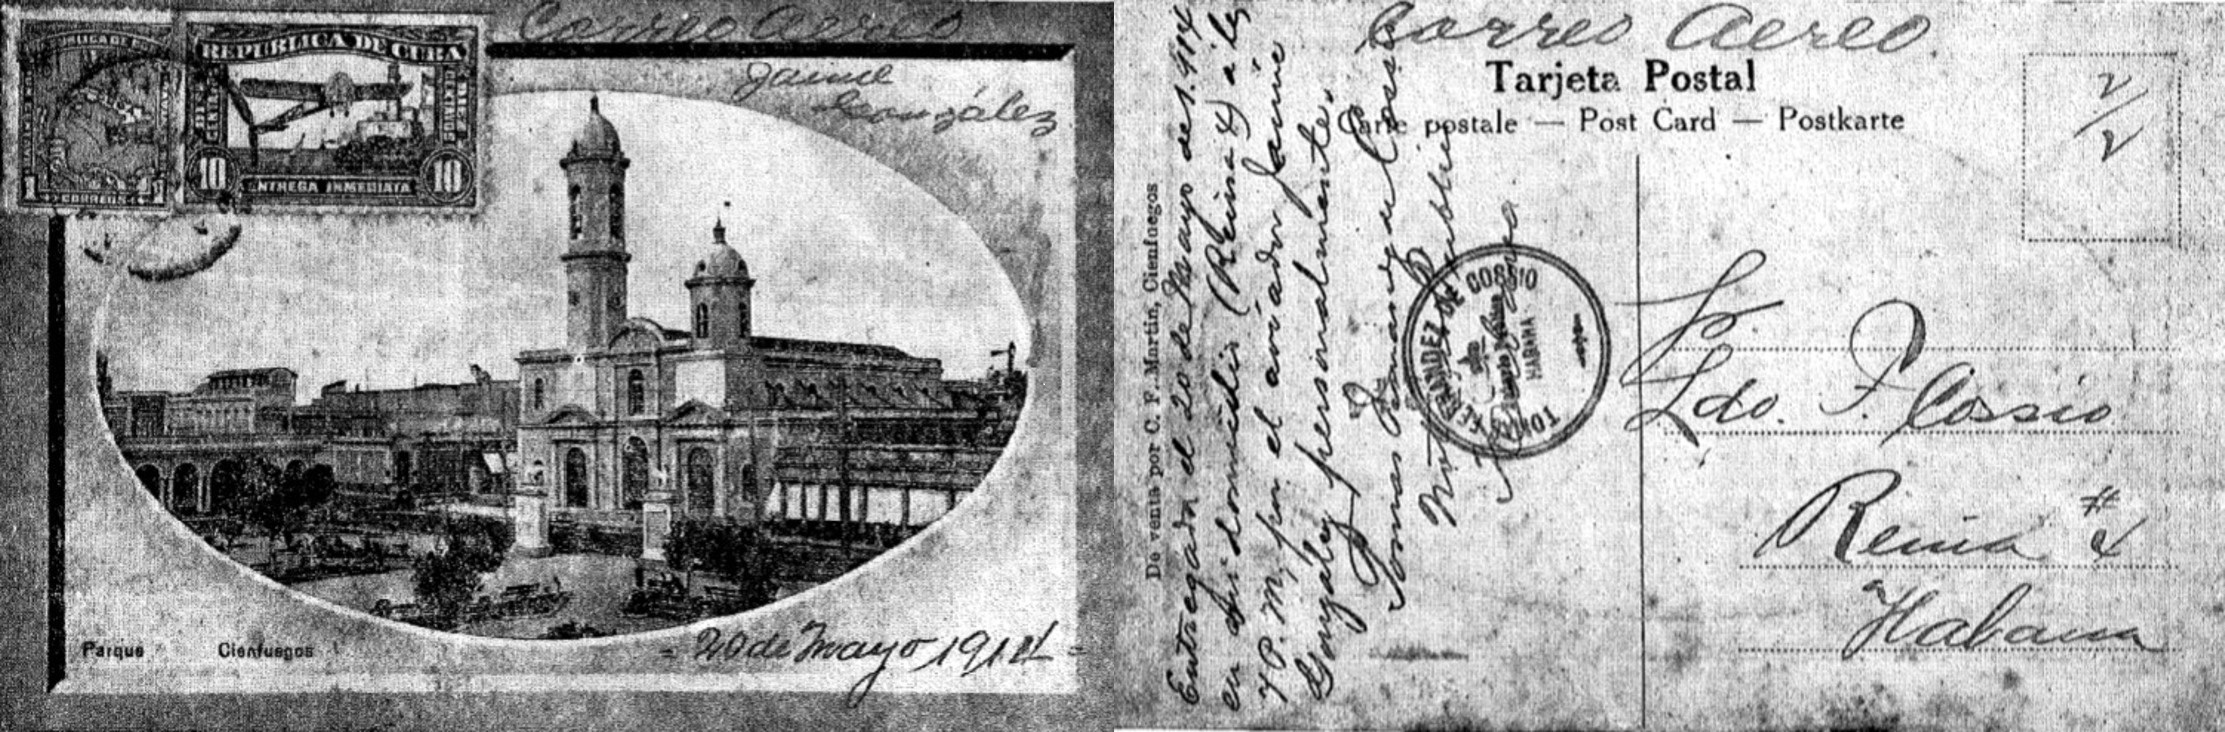 Correo Aereo
Jaime
González
REPUBLICA DE CUBA
10 10
ENTREGA INMEDIATA
1 1
CORREOS
Parque Cienfuegos
20 de Mayo 1914
Correo Aereo
Tarjeta Postal
Carte postale — Post Card — Postkarte
2/2
De venta por C. F. Martin, Cienfuegos
Entregada el 20 de Mayo de 1.914
en su domicilio (Reina 4) a las
7 P. M, por el aviador Jaime
González personalmente.
Tomas Fernandez de Cossio
TOMAS FERNANDEZ DE COSSIO
HABANA
Ldo. F. Cossio
Reina # 4
Habana